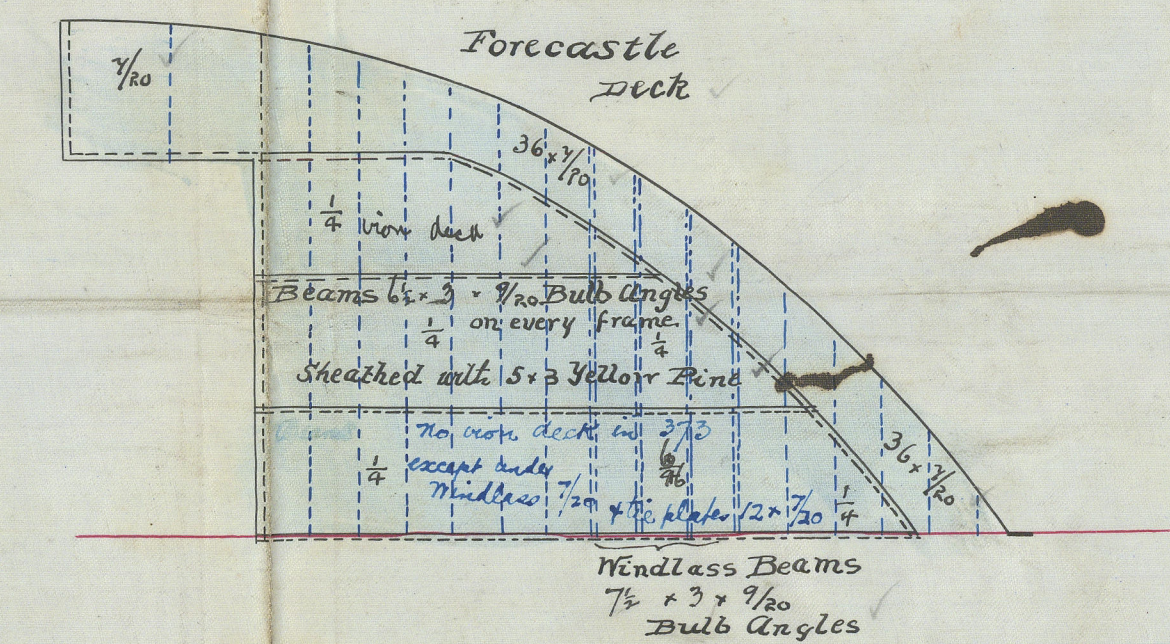 Forecastle
Deck
7/20
36 x 7/20
1/4 iron deck
Beams 6½ x 3 x 9/20 Bulb Angles
1/4 on every frame. 1/4
Sheathed with 5 x 3 Yellow Pine
no iron deck in 373
1/4 except under
Windlass 7/20 & tie plates 12 x 7/20 1/4
36 x 7/20
Windlass Beams
7½ x 3 x 9/20
Bulb Angles